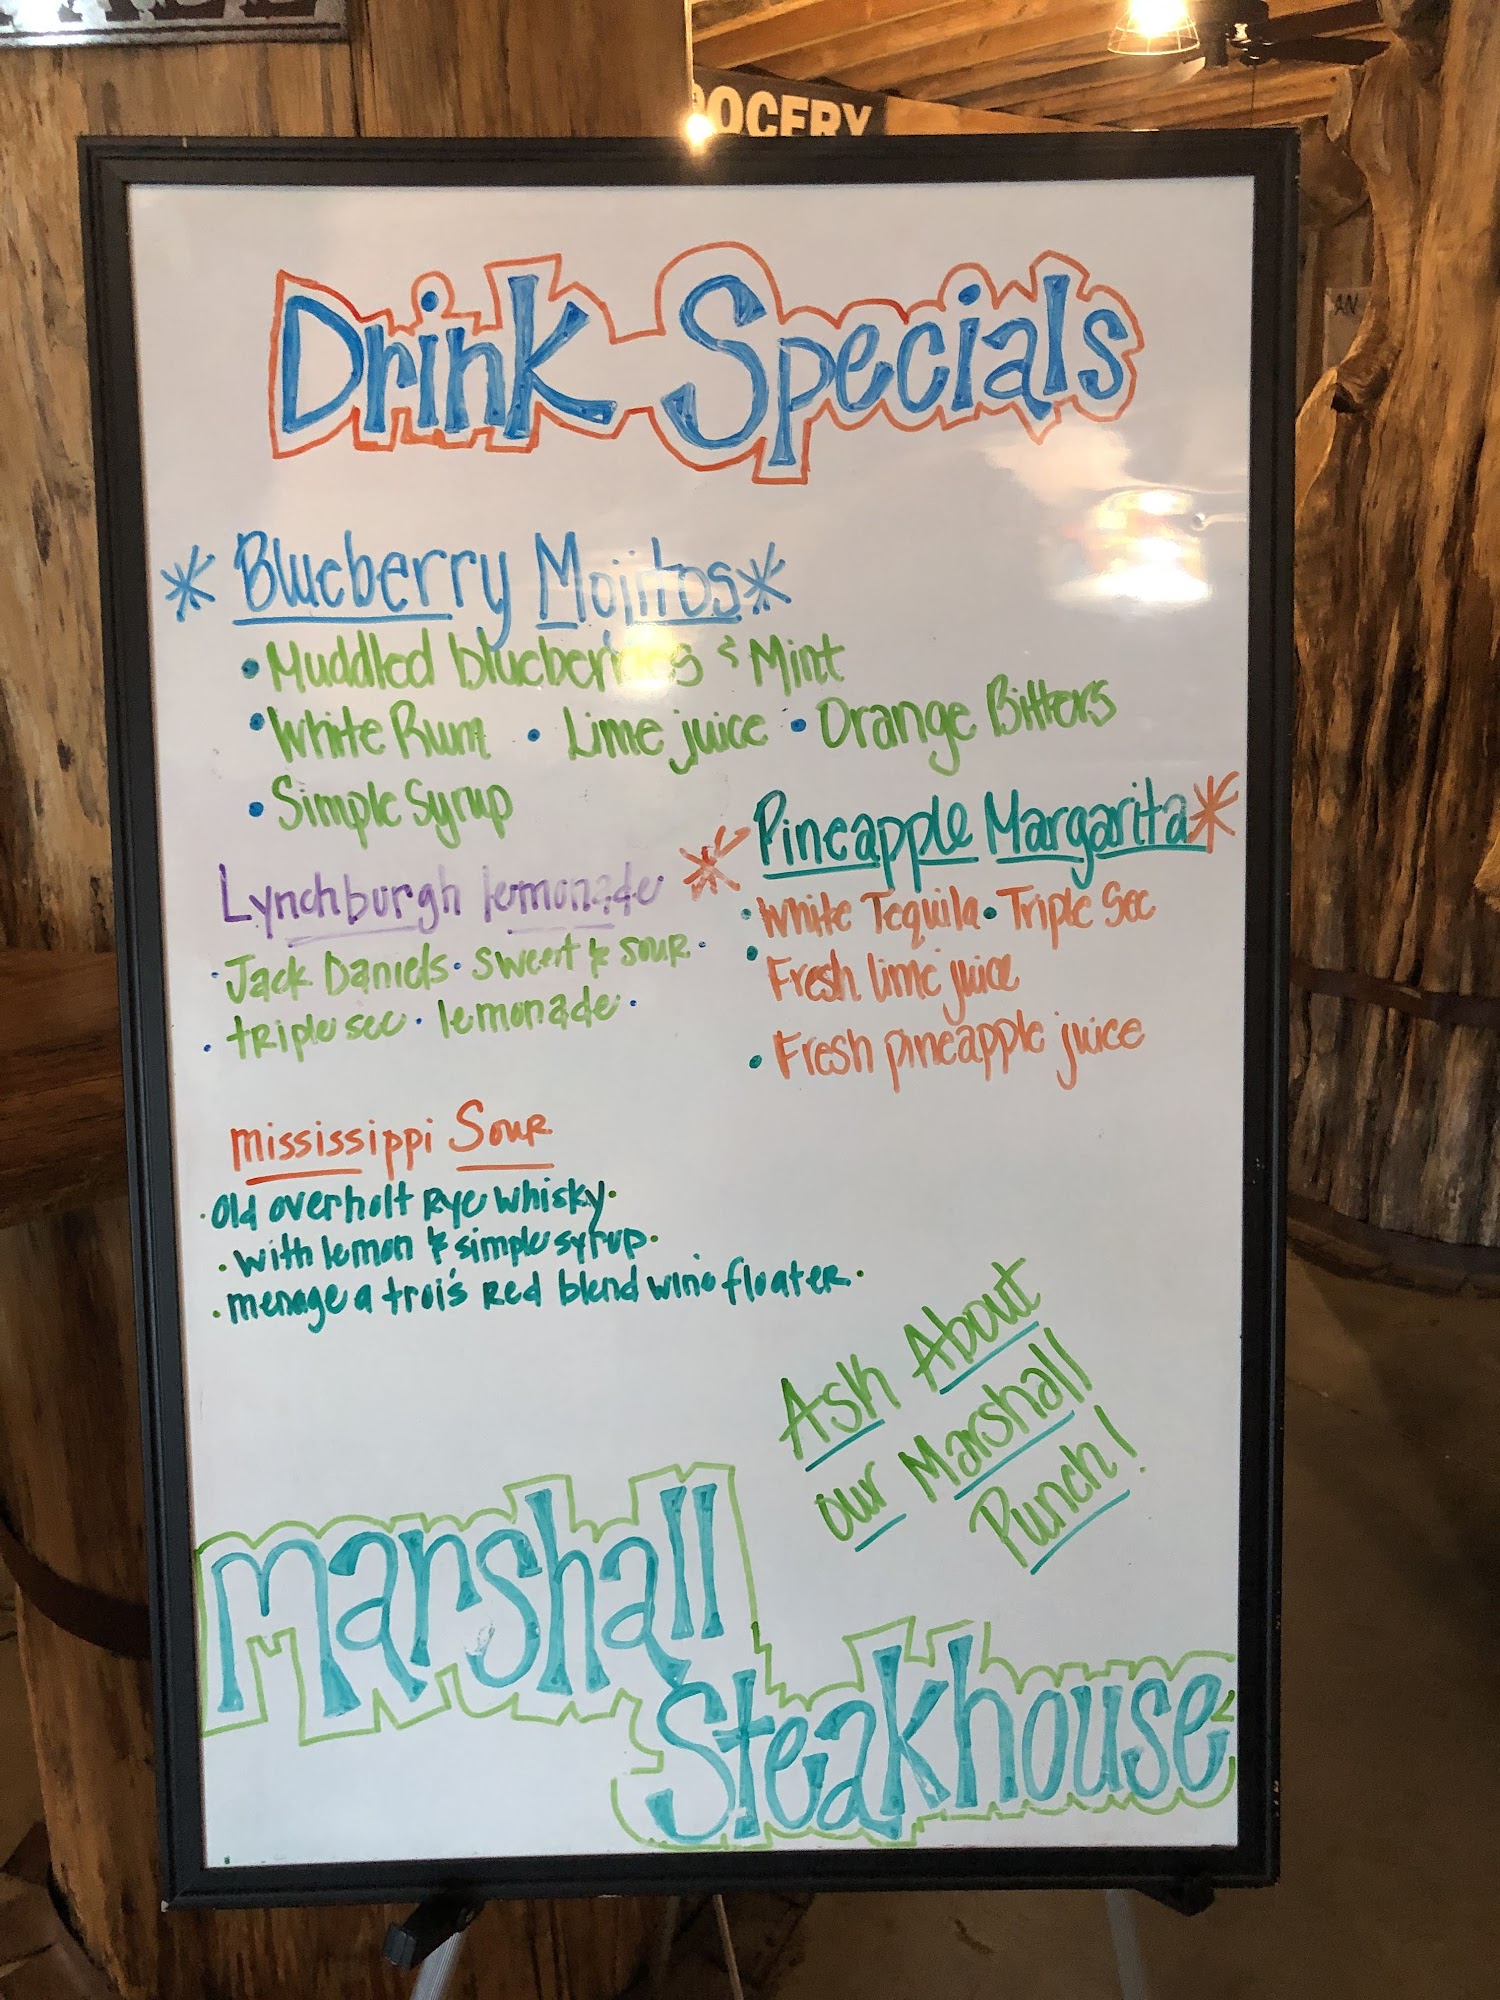 OCERY
AN
Drink Specials
* Blueberry Mojitos *
• Muddled blueberries & Mint
• White Rum • Lime juice • Orange Bitters
• Simple Syrup
Lynchburgh lemonade
• Jack Daniels • sweet & sour •
• triple sec • lemonade •
* Pineapple Margarita *
• White Tequila • Triple Sec
• Fresh lime juice
• Fresh pineapple juice
mississippi Sour
• Old overholt Rye whisky •
• with lemon & simple syrup •
• menage a troi's Red blend wine floater •
Ask About
our Marshall
Punch!
Marshall
Steakhouse